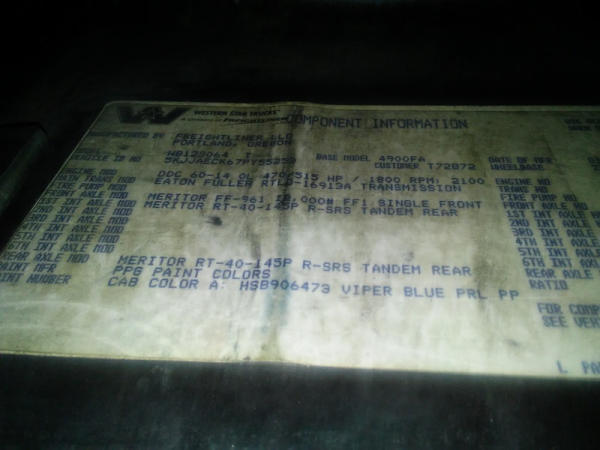 WESTERN STAR TRUCKS
COMPONENT INFORMATION
MANUFACTURED BY FREIGHTLINER LLC
PORTLAND, OREGON
VEHICLE ID NO BASE MODEL 4900FA DATE OF MFR
CUSTOMER T72872 WHEELBASE
ENGINE MOD DDC 60-14.0L 470/515 HP / 1800 RPM, 2100 ENGINE NO
MAIN TRANS MOD EATON FULLER RTLO-16913A TRANSMISSION TRANS NO
FIRE PUMP MOD FIRE PUMP NO
FRONT AXLE MOD MERITOR FF-961 FF1 SINGLE FRONT FRONT AXLE NO
1ST INT AXLE MOD MERITOR RT-40-145P R-SRS TANDEM REAR 1ST INT AXLE
2ND INT AXLE MOD 2ND INT AXLE
3RD INT AXLE MOD 3RD INT AXLE
4TH INT AXLE MOD 4TH INT AXLE
5TH INT AXLE MOD 5TH INT AXLE
6TH INT AXLE MOD 6TH INT AXLE
REAR AXLE MOD MERITOR RT-40-145P R-SRS TANDEM REAR REAR AXLE
PAINT MFR PPG PAINT COLORS RATIO
PAINT NUMBER CAB COLOR A: HSB906473 VIPER BLUE PRL PP
FOR COMP
SEE VER
L PA